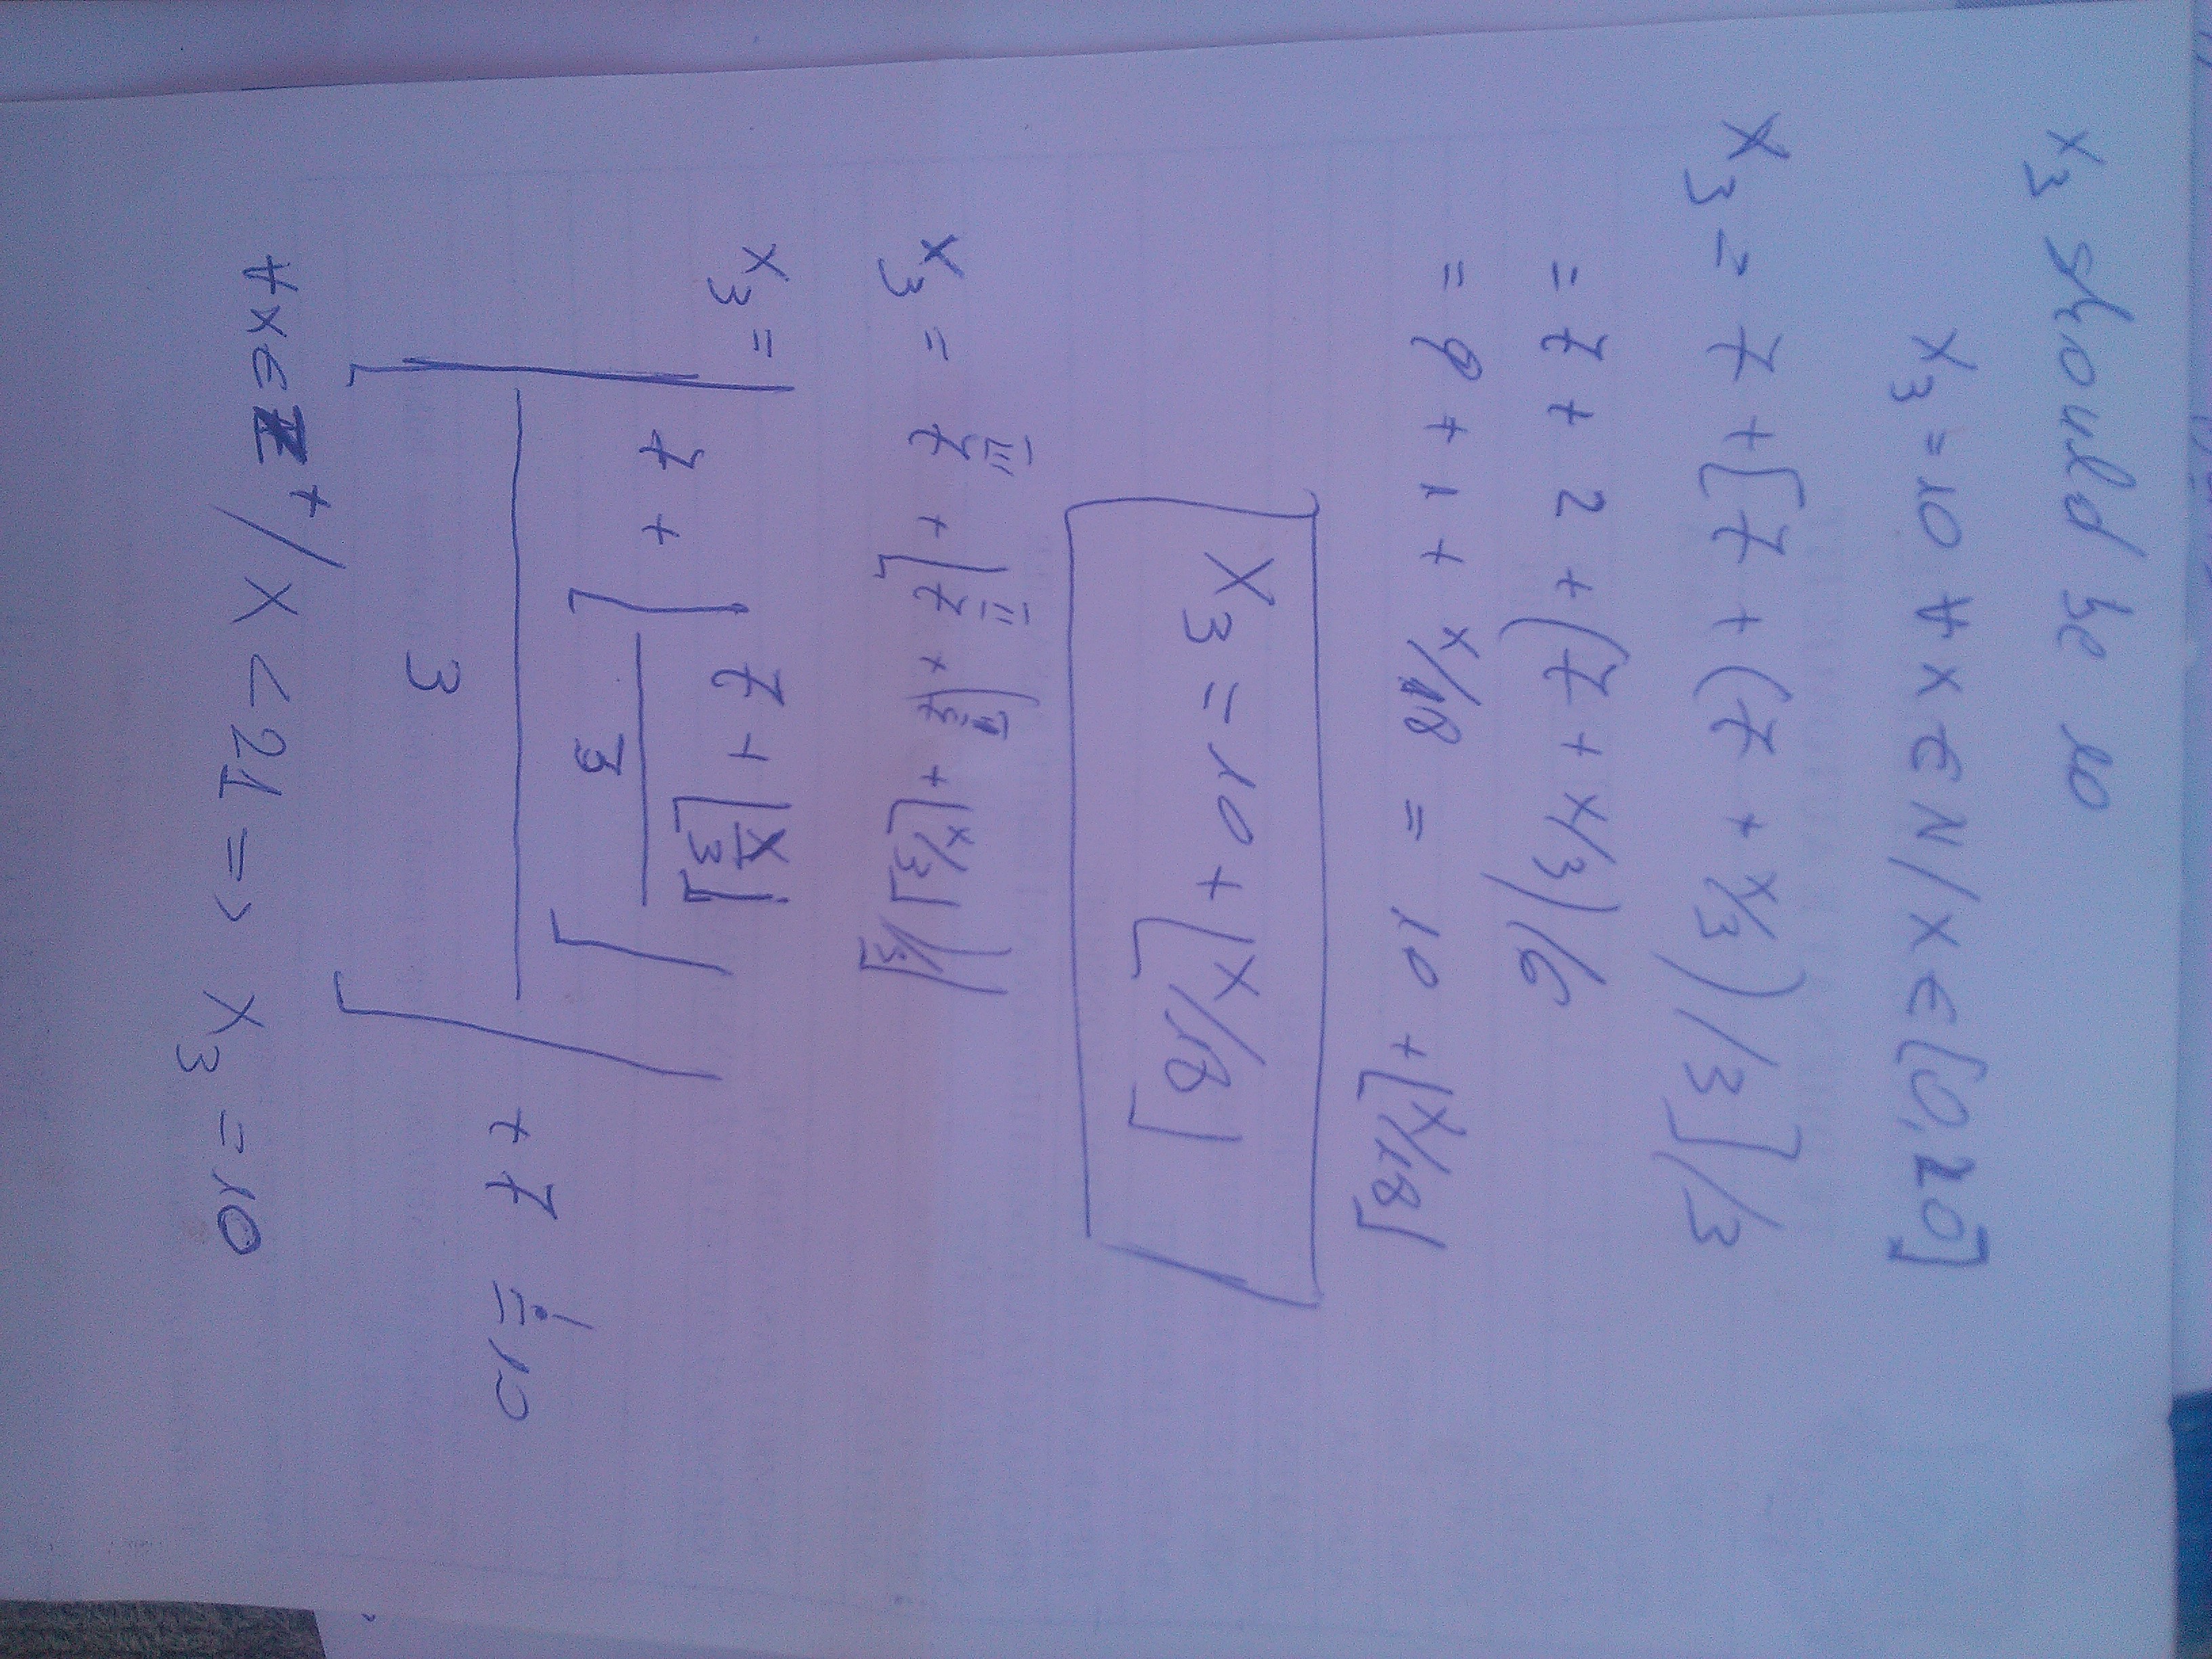 x₃ should be 10
x₃ = 10 ∀ x ∈ N / x ∈ [0, 20]
x₃ = 7 + [7 + (7 + x/3) /3] /3
= 7 + 2 + (7 + x/3) /6
= 9 + 1 + x/18 = 10 + ⌊x/18⌋
x₃ = 10 + ⌊x/18⌋
III II I
x₃ = 7 + ⌊7 + (7 + ⌊x/3⌋)/3⌋
x₃ = ⌊(7 + ⌊(7 + ⌊x/3⌋)/3⌋)/3⌋ + 7 != 10
∀x ∈ Z⁺ / x < 21 => x₃ = 10